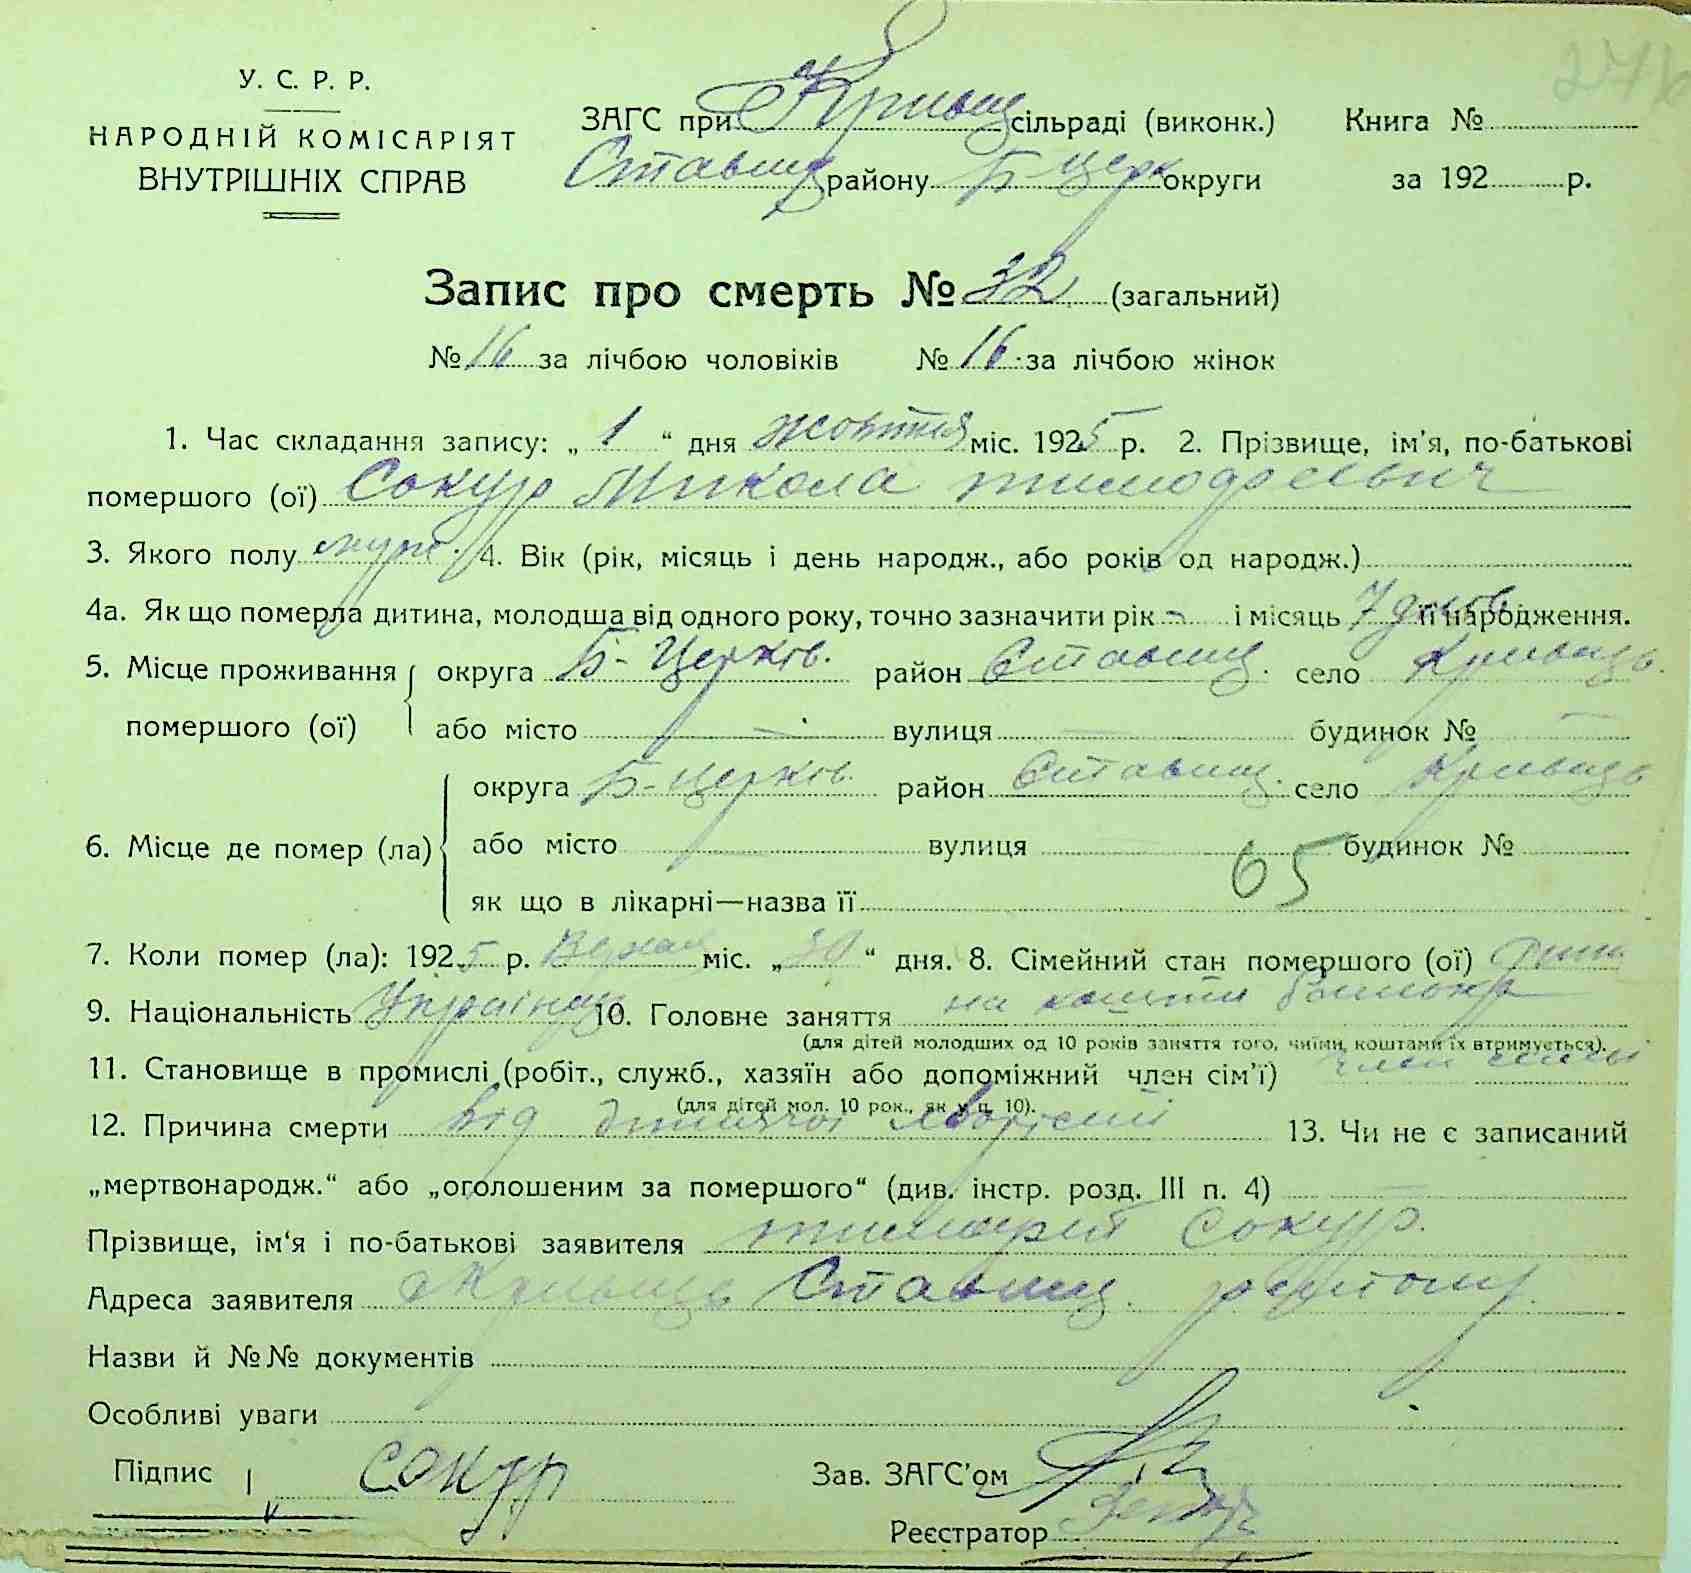 274
У. С. Р. Р.
НАРОДНІЙ КОМІСАРІЯТ
ВНУТРІШНІХ СПРАВ
ЗАГС при Кривец сільраді (виконк.) Книга №
Ставищ району Б-церк округи за 192 р.
Запис про смерть № 32 (загальний)
№ 16 за лічбою чоловіків № 16 за лічбою жінок
1. Час складання запису: „ 1 “ дня жовтня міс. 1925 р. 2. Прізвище, ім'я, по-батькові
помершого (ої) Сокур Микола тимофеевич
3. Якого полу муж. 4. Вік (рік, місяць і день народж., або років од народж.)
4а. Як що померла дитина, молодша від одного року, точно зазначити рік - і місяць 7 днів її народження.
5. Місце проживання округа Б-Церків. район Ставищ. село Кривець.
помершого (ої) або місто — вулиця — будинок № —
округа Б-церків. район Ставищ. село Кривець
6. Місце де помер (ла) або місто — вулиця — будинок №
65
як що в лікарні—назва її
7. Коли помер (ла): 1925 р. міс. „ 30 “ дня. 8. Сімейний стан помершого (ої)
9. Національність Українец 10. Головне заняття на кошти батьків
(для дітей молодших од 10 років заняття того, чиїми коштами їх втримується).
11. Становище в промислі (робіт., служб., хазяїн або допоміжний член сім'ї) член
(для дітей мол. 10 рок., як у п. 10).
12. Причина смерти від дитячої 13. Чи не є записаний
„мертвонародж.“ або „оголошеним за помершого“ (див. інстр. розд. III п. 4) —
Прізвище, ім'я і по-батькові заявителя тимофей Сокур.
Адреса заявителя Кривець Ставищ. району
Назви й №№ документів
Особливі уваги
Підпис Сокур Зав. ЗАГС'ом
Реєстратор